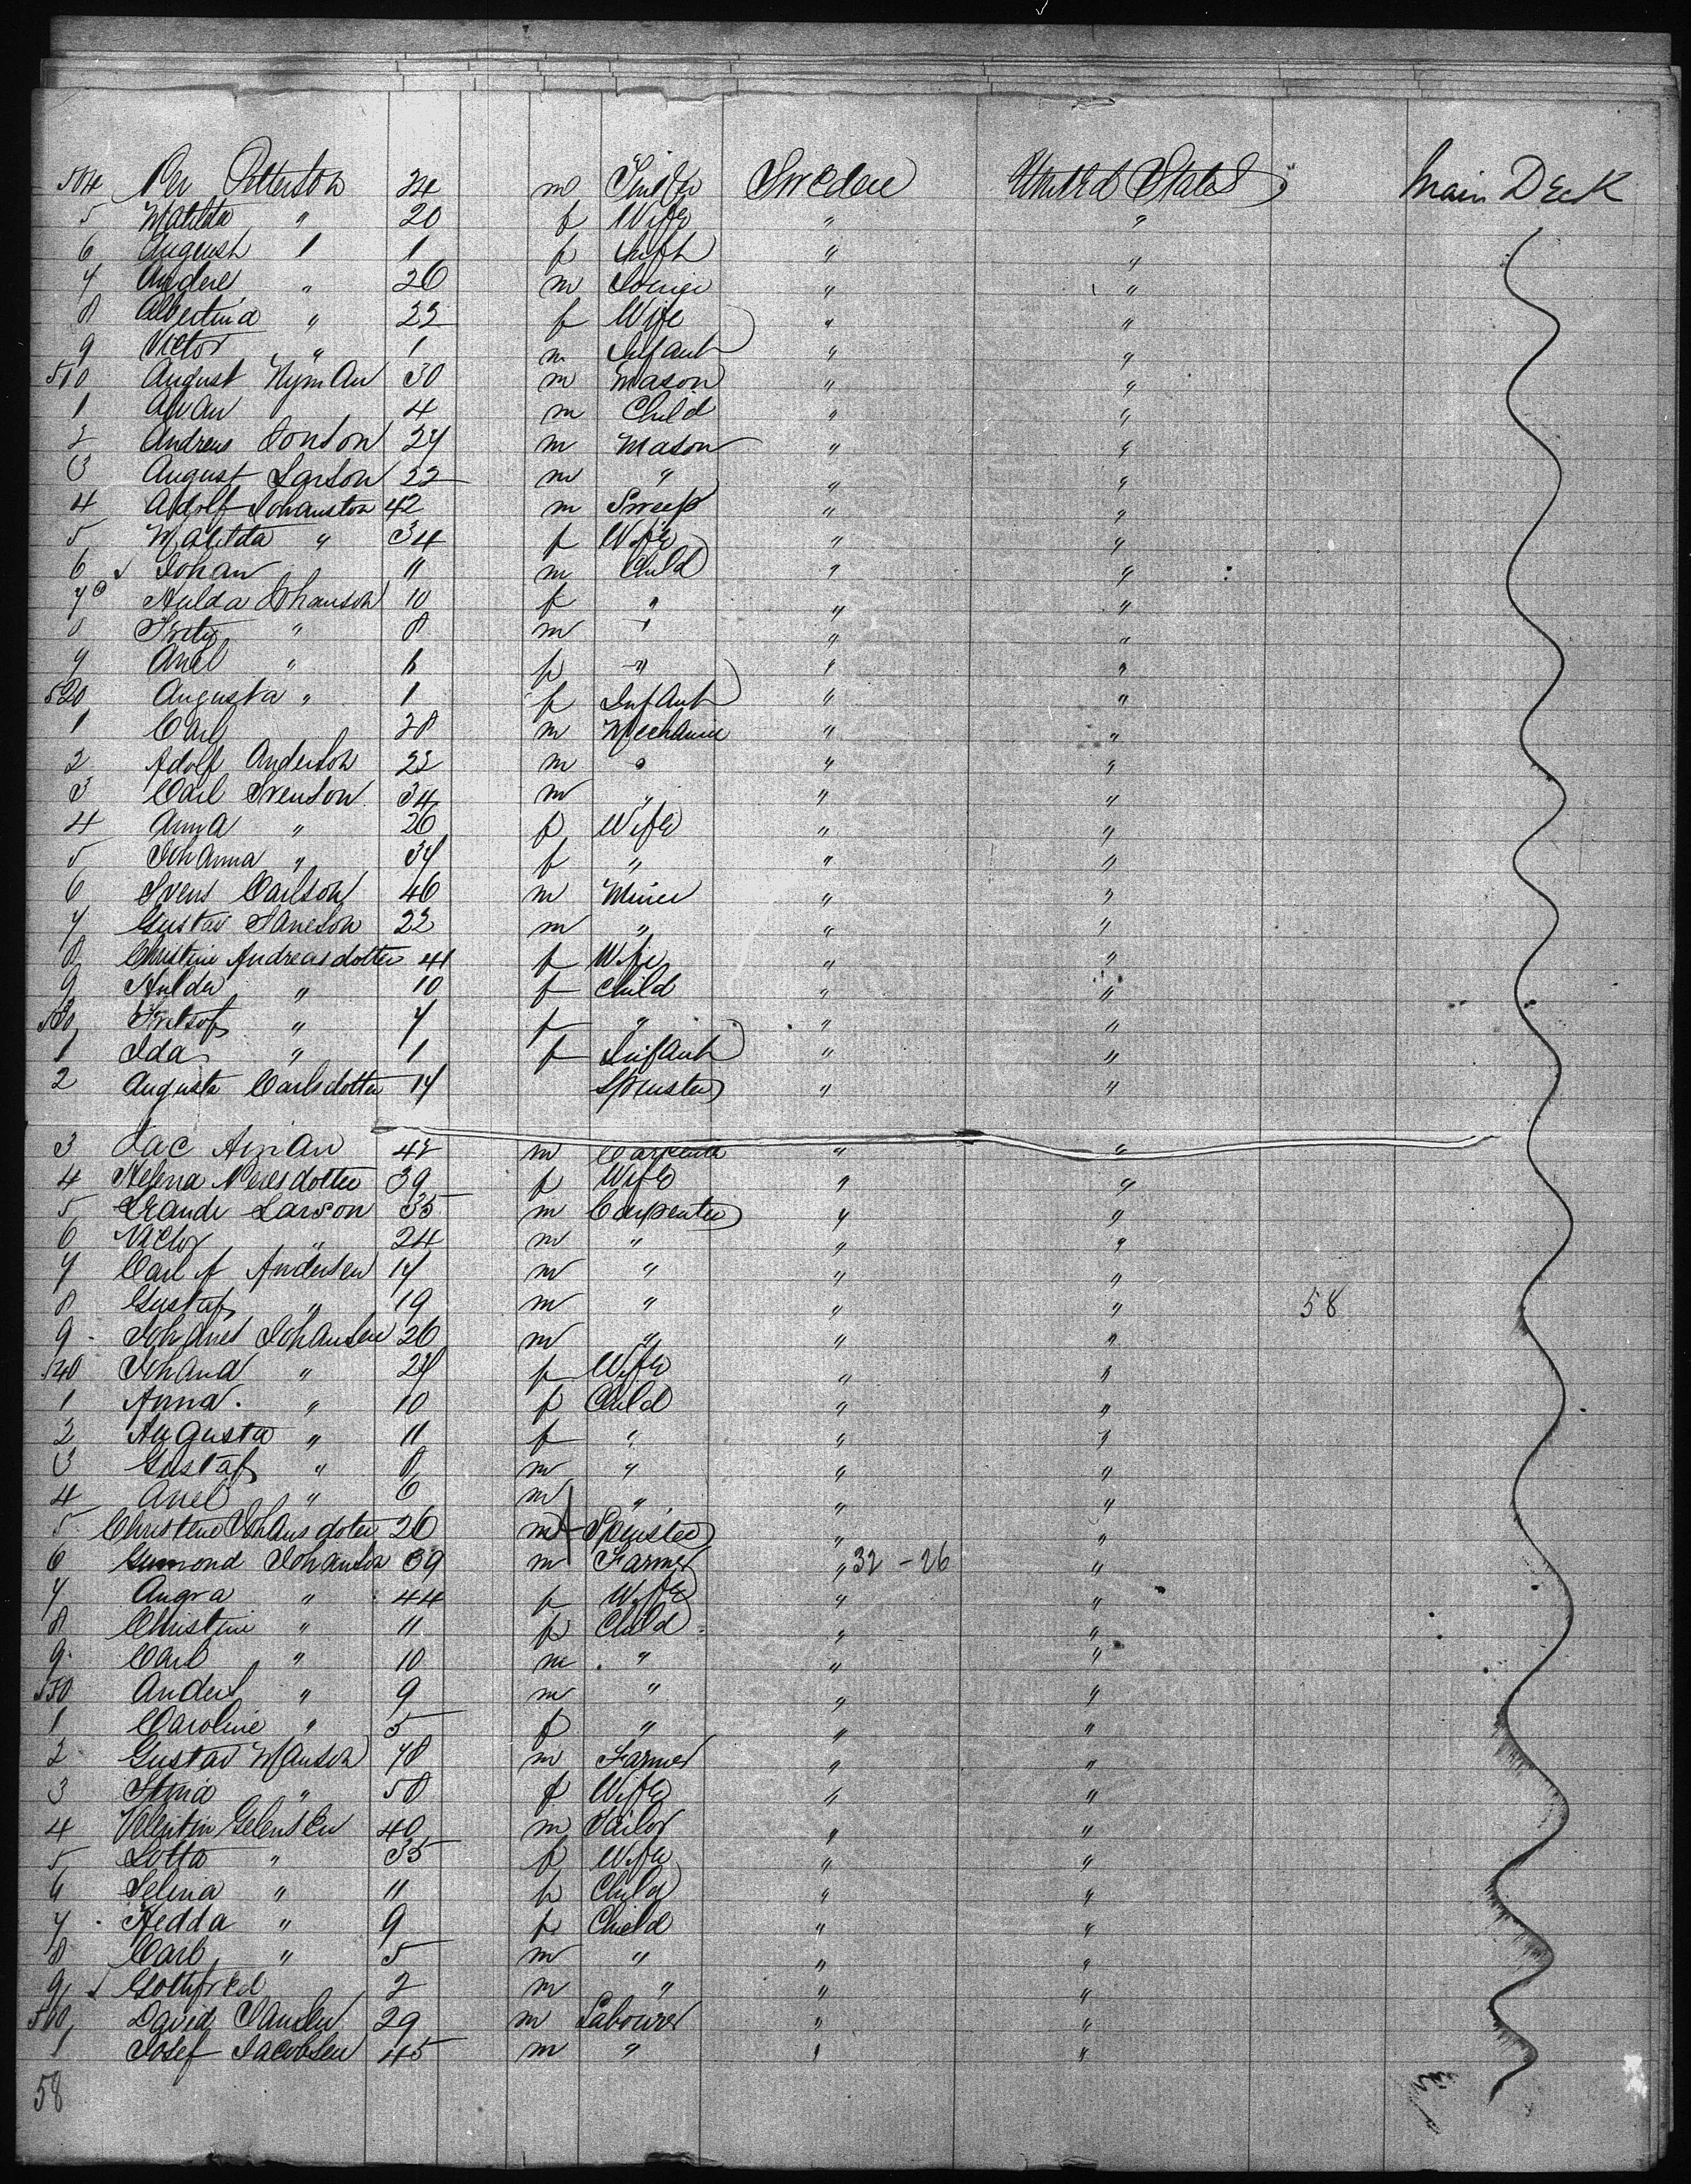 504 Per Petterson 24 m Sweden United States Main Deck
5 Matilda " 20 f Wife " "
6 August " 1 f " "
7 Andere " 26 m " "
8 Albertina " 22 f Wife " "
9 Victor " 1 m Infant " "
510 August Nyman 30 m Mason " "
1 4 m Child " "
2 Andreas Jonson 27 m Mason " "
3 August Larson 22 m " " "
4 Adolf Johanson 42 m Sweep " "
5 Matilda " 34 f Wife " "
6 ✓ Johan " 11 m Child " "
7 Hulda Johanson 10 f " " "
8 Fritz " 8 m " " "
9 Axel " f " " "
520 Augusta " 1 f Infant " "
1 Carl 28 m Mechanic " "
2 Adolf Anderson 22 m " " "
3 Carl Svenson 34 m " " "
4 Anna " 26 f Wife " "
5 Johanna " 37 f " " "
6 Svens Carlson 46 m Miner " "
7 Gustav Janeson 22 m " " "
8 Christine Andreasdotter 41 f Wife " "
9 Hulda " 10 f Child " "
530 Fritsof " 7 f " " "
1 Ida " 1 f Infant " "
2 Augusta Carlsdotter 17 Spinster " "
3 42 m Carpenter " "
4 Helena Peresdotter 39 f Wife " "
5 Larson 35 m Carpenter " "
6 Victor " 24 m " " "
7 Carl A Andersen 17 m " " "
8 Gustaf " 19 m " " " 58
9 Johanes Johansen 26 m " " "
540 Johana " 27 f Wife " "
1 Anna " 10 f Child " "
2 Augusta " 11 f " " "
3 Gustaf " 8 m " " "
4 Axel " 6 m " " "
5 Christine Johansdoter 26 m Spinster " "
6 Gumond Johanson 39 m Farmer " 32 - 26 "
7 Angra " 44 f Wife " "
8 Christine " 11 f Child " "
9 Carl " 10 m " " "
550 Anders " 9 m " " "
1 Caroline " 5 f " " "
2 Gustav Manson 48 m Farmer " "
3 Stina " 50 f Wife " "
4 Velentin Gelensen 40 m Tailor " "
5 Lotta " 35 f Wife " "
6 Selina " 11 f Child " "
7 Hedda " 9 f Chield " "
8 Carl " 5 m " " "
9 Gottfried 2 m " " "
560 David Jansen 29 m Labourer " "
1 Josef Jacobsen 45 m " " "
58